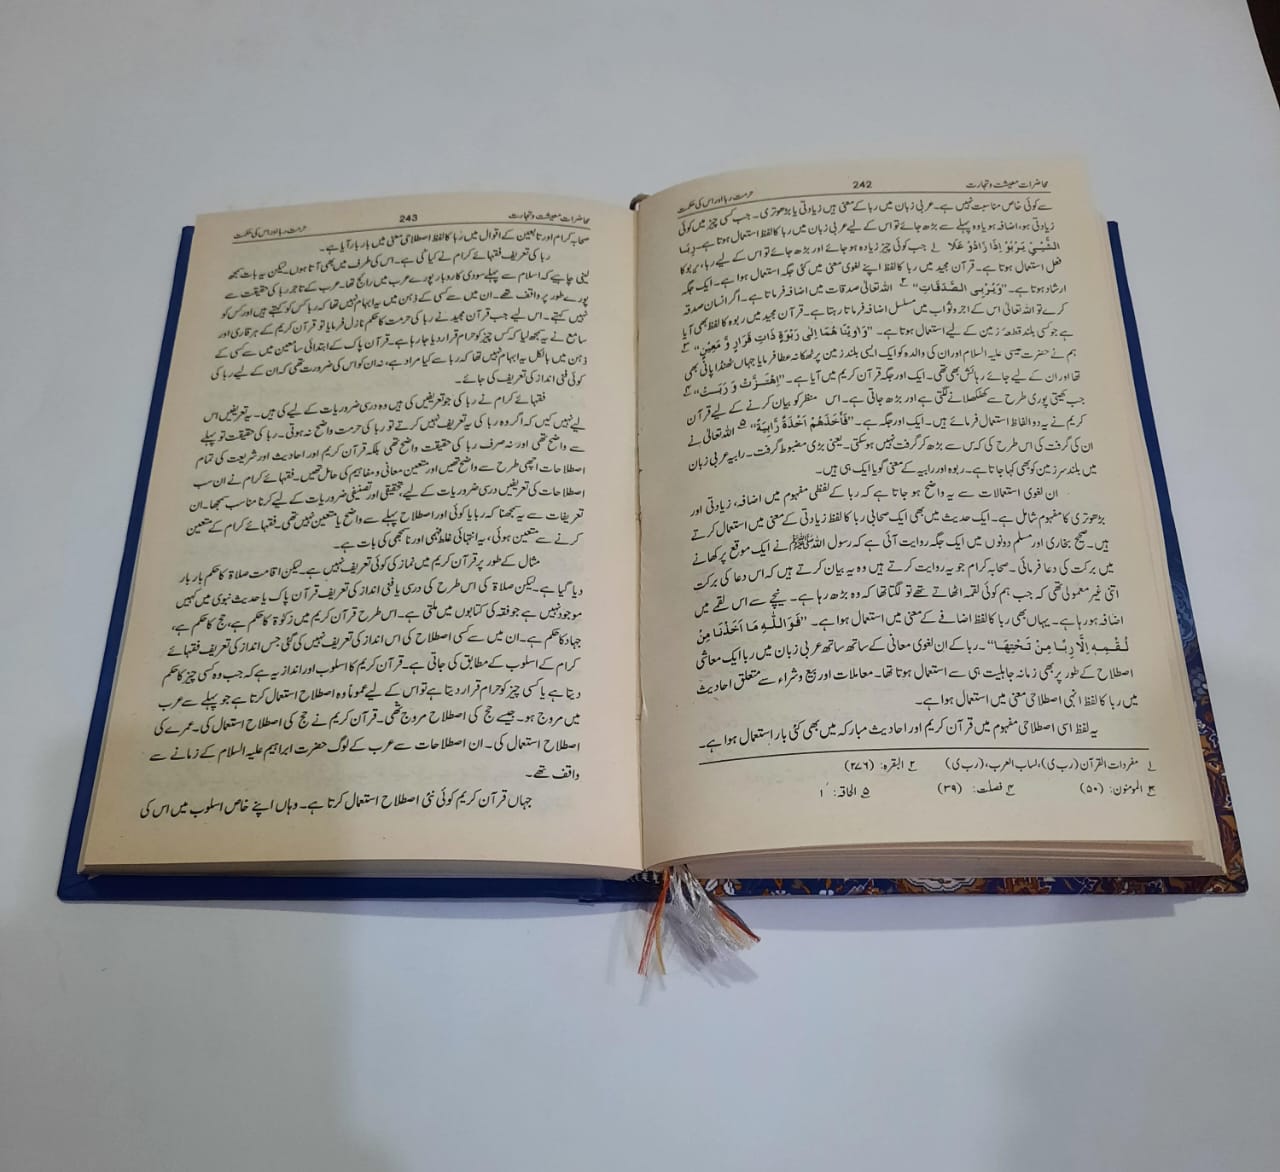 محاضرات معیشت و تجارت 242 حرمت ربا اور اس کی حکمت
سے کوئی خاص مناسبت نہیں ہے۔ عربی زبان میں ربا کے معنی ہیں زیادتی یا بڑھوتری۔ جب کسی چیز میں کوئی
زیادتی ہو، اضافہ ہو یا وہ پہلے سے بڑھ جائے تو اس کے لیے عربی زبان میں ربا کا لفظ استعمال ہوتا ہے۔ رَبَا
الشَّيْئُ يَرْبُوْ اِذَا زَادَ وَ عَلَا ۱ جب کوئی چیز زیادہ ہو جائے اور بڑھ جائے تو اس کے لیے ربا، یربو کا
فعل استعمال ہوتا ہے۔ قرآن مجید میں ربا کا لفظ اپنے لغوی معنی میں کئی جگہ استعمال ہوا ہے۔ ایک جگہ
ارشاد ہوتا ہے۔ ”وَيُرْبِي الصَّدَقَاتِ“ ۲ اللہ تعالیٰ صدقات میں اضافہ فرماتا ہے۔ اگر انسان صدقہ
کرے تو اللہ تعالیٰ اس کے اجر و ثواب میں مسلسل اضافہ فرماتا رہتا ہے۔ قرآن مجید میں ربوہ کا لفظ بھی آیا
ہے جو کسی بلند قطعہ زمین کے لیے استعمال ہوتا ہے۔ ”وَاٰوَيْنٰهُمَا اِلٰى رَبْوَةٍ ذَاتِ قَرَارٍ وَّ مَعِيْنٍ“ ۳
ہم نے حضرت عیسیٰ علیہ السلام اور ان کی والدہ کو ایک ایسی بلند زمین پر ٹھکانہ عطا فرمایا جہاں ٹھنڈا پانی بھی
تھا اور ان کے لیے جائے رہائش بھی تھی۔ ایک اور جگہ قرآن کریم میں آیا ہے۔ ”اِهْتَزَّتْ وَ رَبَتْ“ ۴
جب کھیتی پوری طرح سے کھلکھلانے لگتی ہے اور بڑھ جاتی ہے۔ اس منظر کو بیان کرنے کے لیے قرآن
کریم نے یہ دو الفاظ استعمال فرمائے ہیں۔ ایک اور جگہ ہے۔ ”فَاَخَذَهُمْ اَخْذَةً رَّابِيَةً“ ۵ اللہ تعالیٰ نے
ان کی گرفت کی اس طرح کی کہ کس سے بڑھ کر گرفت نہیں ہو سکتی۔ یعنی بڑی مضبوط گرفت۔ رابیہ عربی زبان
میں بلند سرزمین کو بھی کہا جاتا ہے۔ ربوہ اور رابیہ کے معنی گویا ایک ہی ہیں۔
ان لغوی استعمالات سے یہ واضح ہو جاتا ہے کہ ربا کے لفظی مفہوم میں اضافہ، زیادتی اور
بڑھوتری کا مفہوم شامل ہے۔ ایک حدیث میں بھی ایک صحابی ربا کا لفظ زیادتی کے معنی میں استعمال کرتے
ہیں۔ صحیح بخاری اور مسلم دونوں میں ایک جگہ روایت آئی ہے کہ رسول اللہ ﷺ نے ایک موقع پر کھانے
میں برکت کی دعا فرمائی۔ صحابہ کرام جو یہ روایت کرتے ہیں وہ یہ بیان کرتے ہیں کہ اس دعا کی برکت
اتنی غیر معمولی تھی کہ جب ہم کوئی لقمہ اٹھاتے تھے تو لگتا تھا کہ وہ بڑھ رہا ہے۔ نیچے سے اس لقمے میں
اضافہ ہو رہا ہے۔ یہاں بھی ربا کا لفظ اضافے کے معنی میں استعمال ہوا ہے۔ ”فَوَاللّٰهِ مَا اَخَذْنَا مِنْ
لُقْمَةٍ اِلَّا رَبَا مِنْ تَحْتِهَا“۔ ربا کے ان لغوی معانی کے ساتھ ساتھ عربی زبان میں ربا ایک معاشی
اصطلاح کے طور پر بھی زمانہ جاہلیت ہی سے استعمال ہوتا تھا۔ معاملات اور بیع و شراء سے متعلق احادیث
میں ربا کا لفظ انہی اصطلاحی معنی میں استعمال ہوا ہے۔
یہ لفظ اسی اصطلاحی مفہوم میں قرآن کریم اور احادیث مبارکہ میں بھی کئی بار استعمال ہوا ہے۔
۱ مفردات القرآن (رب ی)، لساب العرب، (رب ی) ۲ البقرہ: (۲۷۶)
۳ المومنون: (۵۰) ۴ فصلت: (۳۹) ۵ الحاقہ: ۱۰
محاضرات معیشت و تجارت 243 حرمت ربا اور اس کی حکمت
صحابہ کرام اور تابعین کے اقوال میں ربا کا لفظ اصطلاحی معنی میں بار بار آیا ہے۔
ربا کی تعریف فقہائے کرام نے کیا کی ہے۔ اس کی طرف میں بھی آتا ہوں۔ لیکن یہ بات سمجھ
لینی چاہیے کہ اسلام سے پہلے سودی کاروبار پورے عرب میں رائج تھا۔ عرب کے تاجر ربا کی حقیقت سے
پورے طور پر واقف تھے۔ ان میں سے کسی کے ذہن میں یہ ابہام نہیں تھا کہ ربا کس کو کہتے ہیں اور کس کو
نہیں کہتے۔ اس لیے جب قرآن مجید نے ربا کی حرمت کا حکم نازل فرمایا تو قرآن کریم کے ہر قاری اور
سامع نے یہ سمجھ لیا کہ کس چیز کو حرام قرار دیا جا رہا ہے۔ قرآن پاک کے ابتدائی سامعین میں سے کسی کے
ذہن میں بالکل یہ ابہام نہیں تھا کہ ربا سے کیا مراد ہے، نہ ان کو اس کی ضرورت تھی کہ ان کے لیے ربا کی
کوئی فنی انداز کی تعریف کی جائے۔
فقہائے کرام نے ربا کی جو تعریفیں کی ہیں وہ درسی ضروریات کے لیے کی ہیں۔ یہ تعریفیں اس
لیے نہیں کیں کہ اگر وہ ربا کی یہ تعریف نہیں کرتے تو ربا کی حرمت واضح نہ ہوتی۔ ربا کی حقیقت تو پہلے
سے واضح تھی اور نہ صرف ربا کی حقیقت واضح تھی بلکہ قرآن کریم اور احادیث اور شریعت کی تمام
اصطلاحات اچھی طرح سے واضح تھیں اور متعین معانی و مفاہیم کی حامل تھیں۔ فقہائے کرام نے ان سب
اصطلاحات کی تعریفیں درسی ضروریات کے لیے، تحقیقی اور تصنیفی ضروریات کے لیے کرنا مناسب سمجھا۔ ان
تعریفات سے یہ سمجھنا کہ ربا یا کوئی اور اصطلاح پہلے سے واضح یا متعین نہیں تھی۔ فقہائے کرام کے متعین
کرنے سے متعین ہوئی، یہ انتہائی غلط فہمی اور ناسمجھی کی بات ہے۔
مثال کے طور پر قرآن کریم میں نماز کی کوئی تعریف نہیں ہے۔ لیکن اقامت صلاۃ کا حکم بار بار
دیا گیا ہے۔ لیکن صلاۃ کی اس طرح کی درسی یا فنی انداز کی تعریف قرآن پاک یا حدیث نبوی میں کہیں
موجود نہیں ہے جو فقہ کی کتابوں میں ملتی ہے۔ اس طرح قرآن کریم میں زکوٰۃ کا حکم ہے، حج کا حکم ہے،
جہاد کا حکم ہے۔ ان میں سے کسی اصطلاح کی اس انداز کی تعریف نہیں کی گئی جس انداز کی تعریف فقہائے
کرام کے اسلوب کے مطابق کی جاتی ہے۔ قرآن کریم کا اسلوب اور انداز یہ ہے کہ جب وہ کسی چیز کا حکم
دیتا ہے یا کسی چیز کو حرام قرار دیتا ہے تو اس کے لیے عموماً وہ اصطلاح استعمال کرتا ہے جو پہلے سے عرب
میں مروج ہو۔ جیسے حج کی اصطلاح مروج تھی۔ قرآن کریم نے حج کی اصطلاح استعمال کی۔ عمرے کی
اصطلاح استعمال کی۔ ان اصطلاحات سے عرب کے لوگ حضرت ابراہیم علیہ السلام کے زمانے سے
واقف تھے۔
جہاں قرآن کریم کوئی نئی اصطلاح استعمال کرتا ہے۔ وہاں اپنے خاص اسلوب میں اس کی